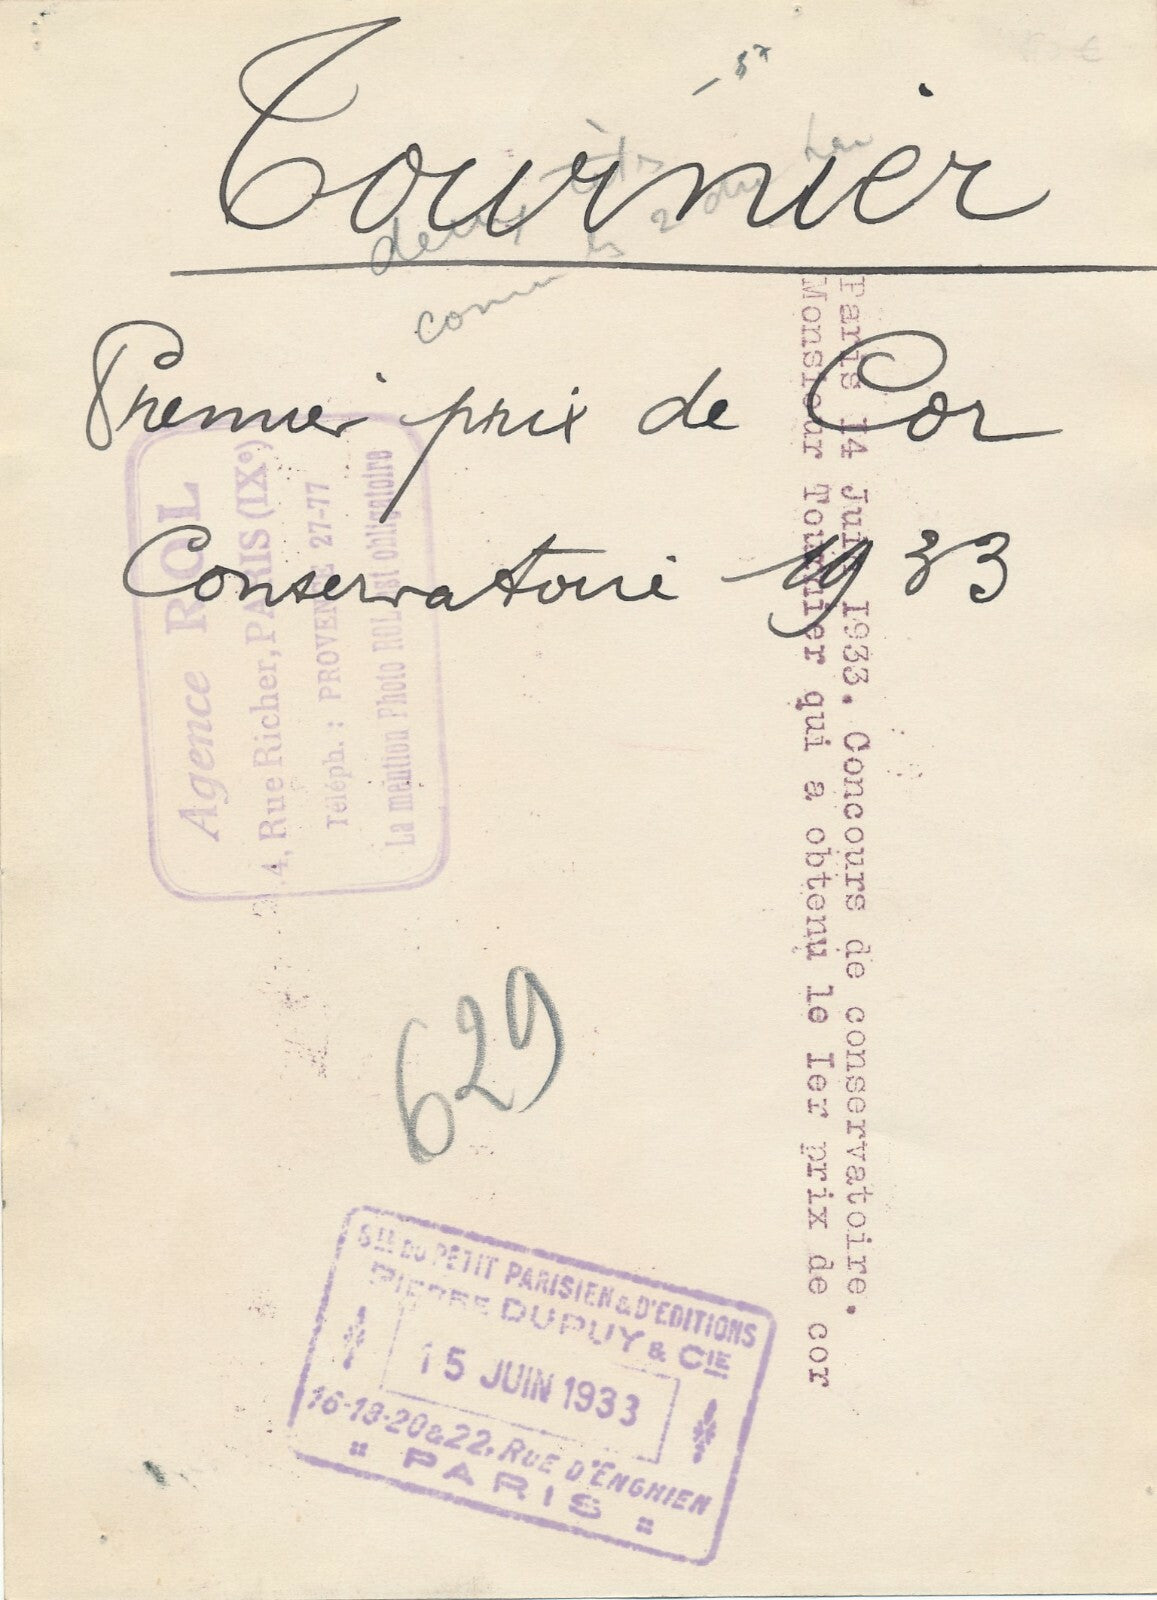 Tournier
Premier prix de Cor
Conservatoire 1933
Paris 14 Juin 1933. Concours de conservatoire.
Monsieur Tournier qui a obtenu le Ier prix de cor
Agence ROL
4, Rue Richer, PARIS (IXe)
Téléph. : PROVENCE 27-77
La mention Photo ROL est obligatoire
629
Sté DU PETIT PARISIEN & D'EDITIONS
PIERRE DUPUY & CIE
15 JUIN 1933
16-18-20&22, RUE D'ENGHIEN
PARIS